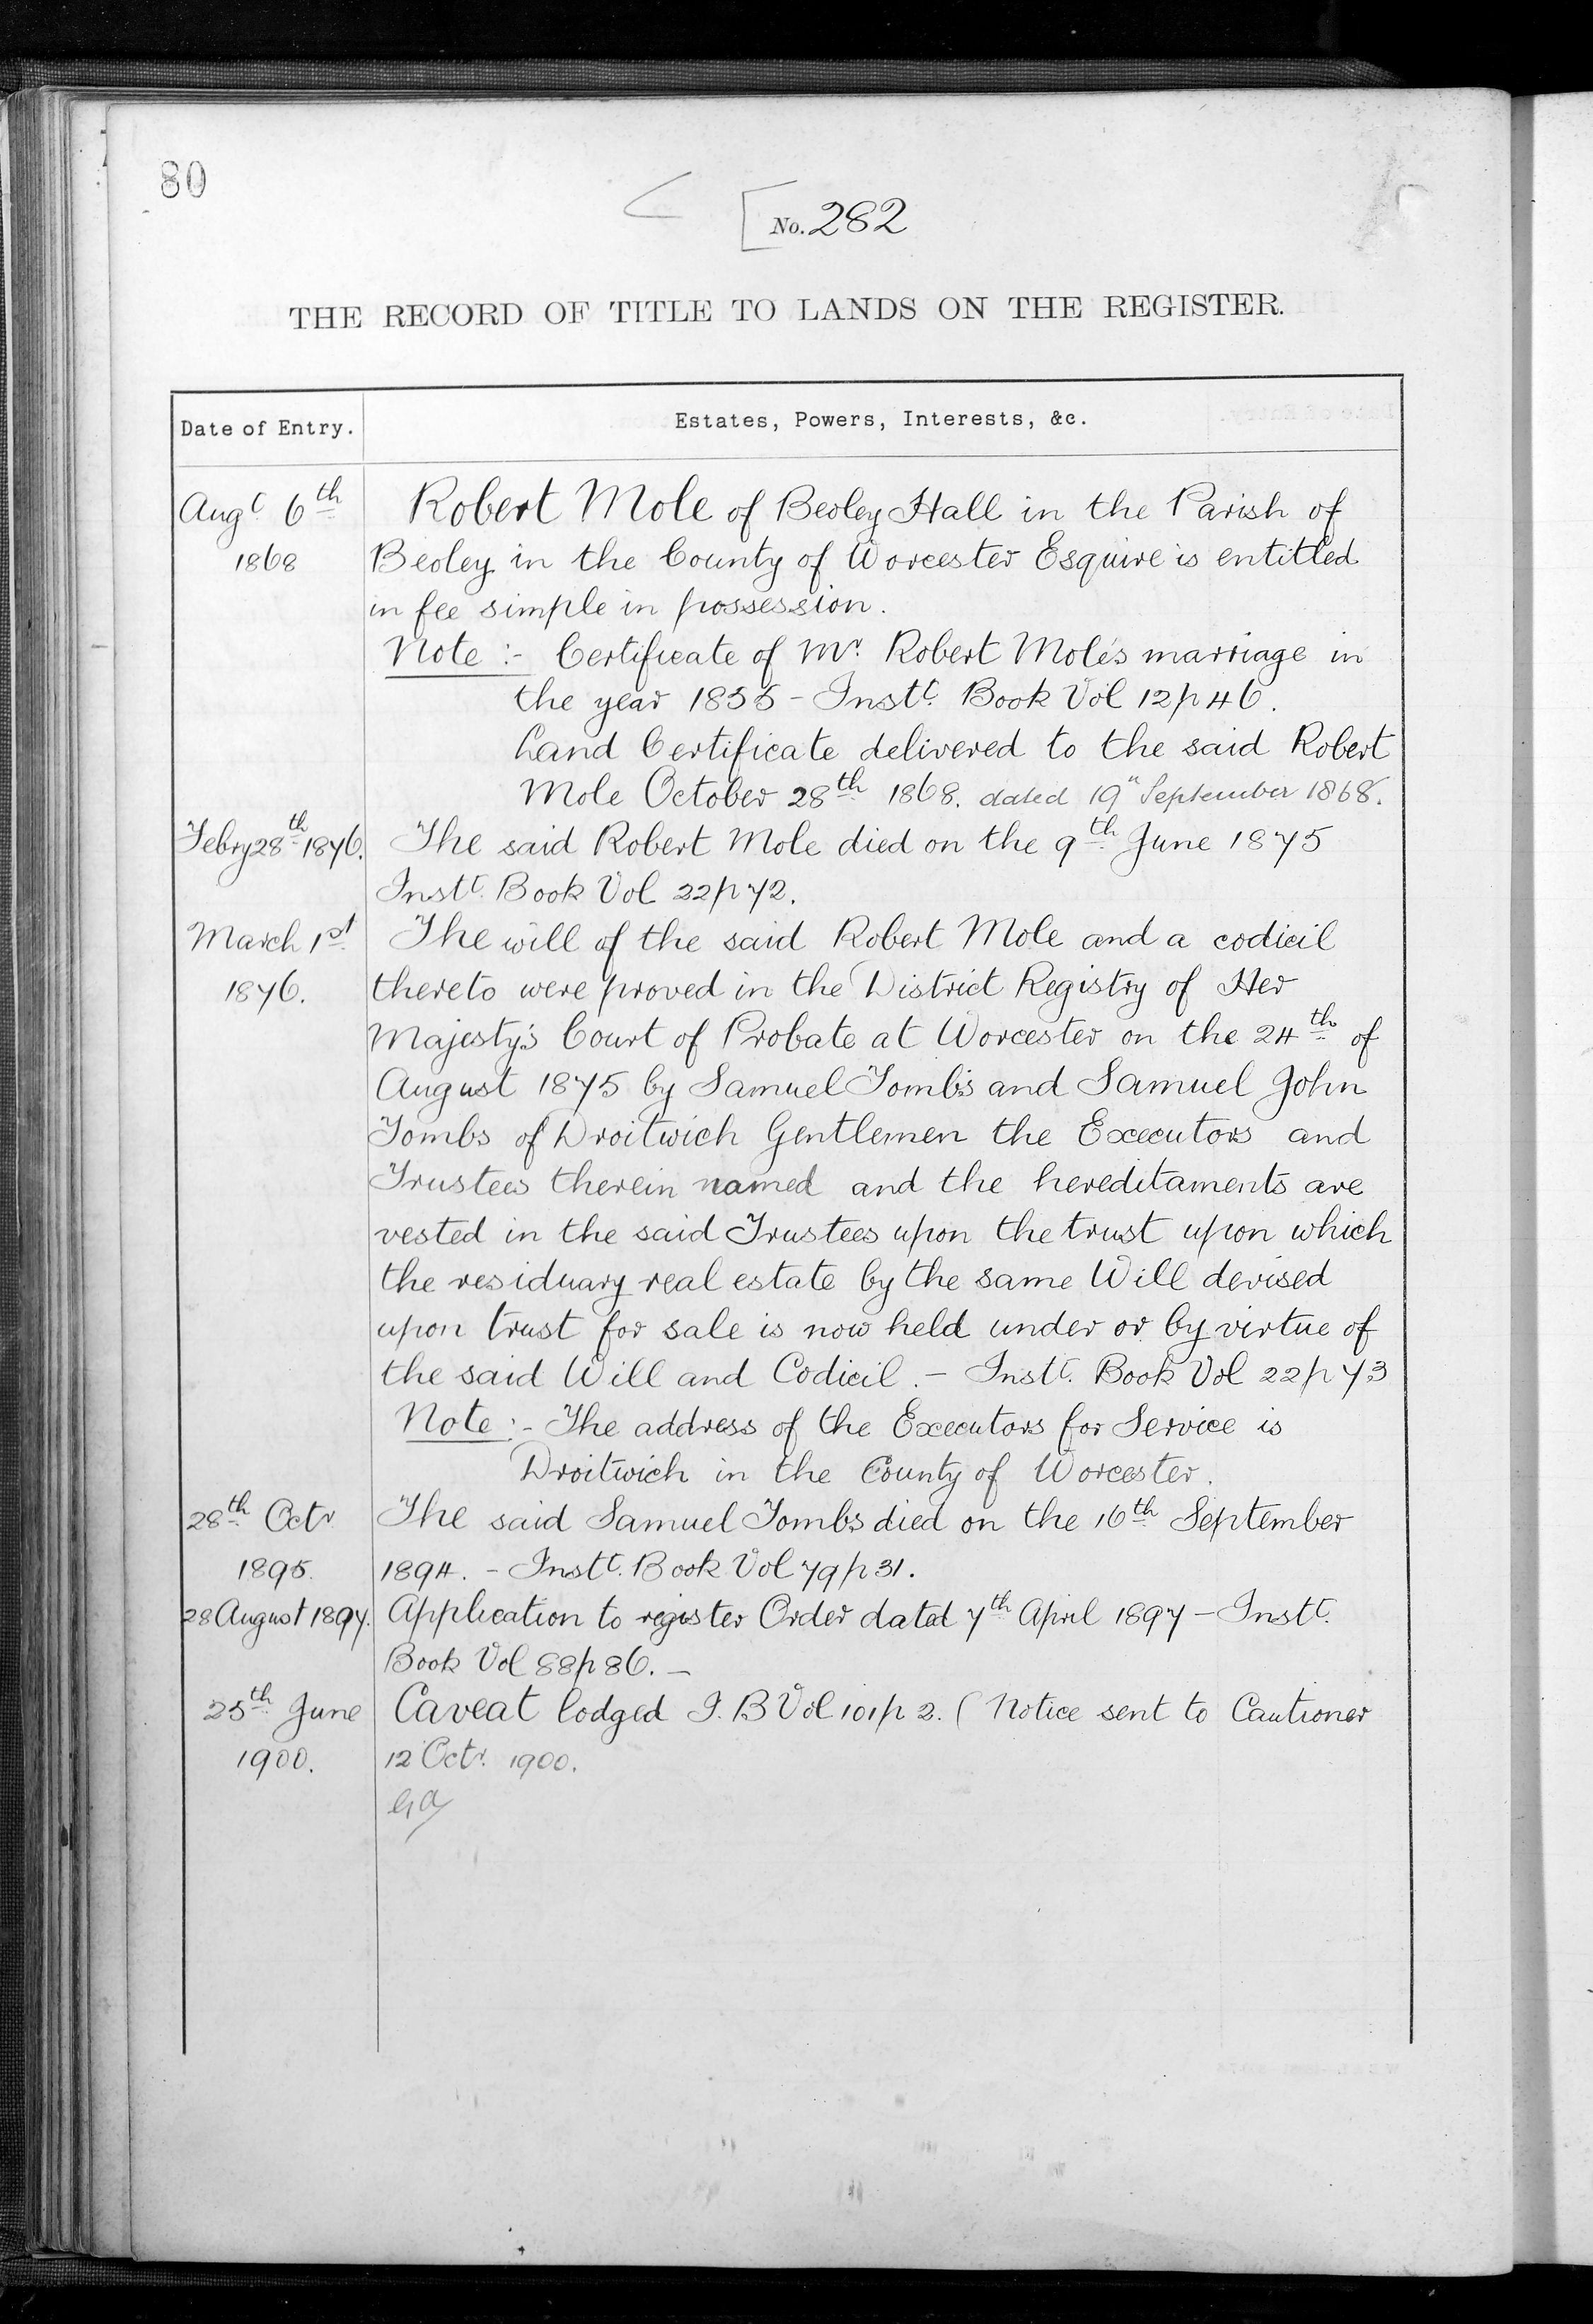 80
No. 282
THE RECORD OF TITLE TO LANDS ON THE REGISTER.
Date of Entry. Estates, Powers, Interests, &c.
Augt. 6th Robert Mole of Beoley Hall in the Parish of
1868 Beoley in the County of Worcester Esquire is entitled
in fee simple in possession.
Note :- Certificate of Mr. Robert Mole's marriage in
the year 1835 - Instt. Book Vol 12 p 46.
Land Certificate delivered to the said Robert
Mole October 28th 1868. dated 19" September 1868.
Febry 28th 1876. The said Robert Mole died on the 9th June 1875
Instt. Book Vol 22 p 72.
March 1st The will of the said Robert Mole and a codicil
1876. thereto were proved in the District Registry of Her
Majesty's Court of Probate at Worcester on the 24th of
August 1875 by Samuel Tombs and Samuel John
Tombs of Droitwich Gentlemen the Executors and
Trustees therein named and the hereditaments are
vested in the said Trustees upon the trust upon which
the residuary real estate by the same Will devised
upon trust for sale is now held under or by virtue of
the said Will and Codicil. - Instt. Book Vol 22 p 73
Note :- The address of the Executors for Service is
Droitwich in the County of Worcester.
28th Octr The said Samuel Tombs died on the 16th September
1895. 1894. - Instt. Book Vol 79 p 31.
28 August 1897. Application to register Order dated 7th April 1897 - Instt.
Book Vol 88 p 86. -
25th June Caveat lodged I. B Vol 101 p 2. ( Notice sent to Cautioner
1900. 12 Octr. 1900.